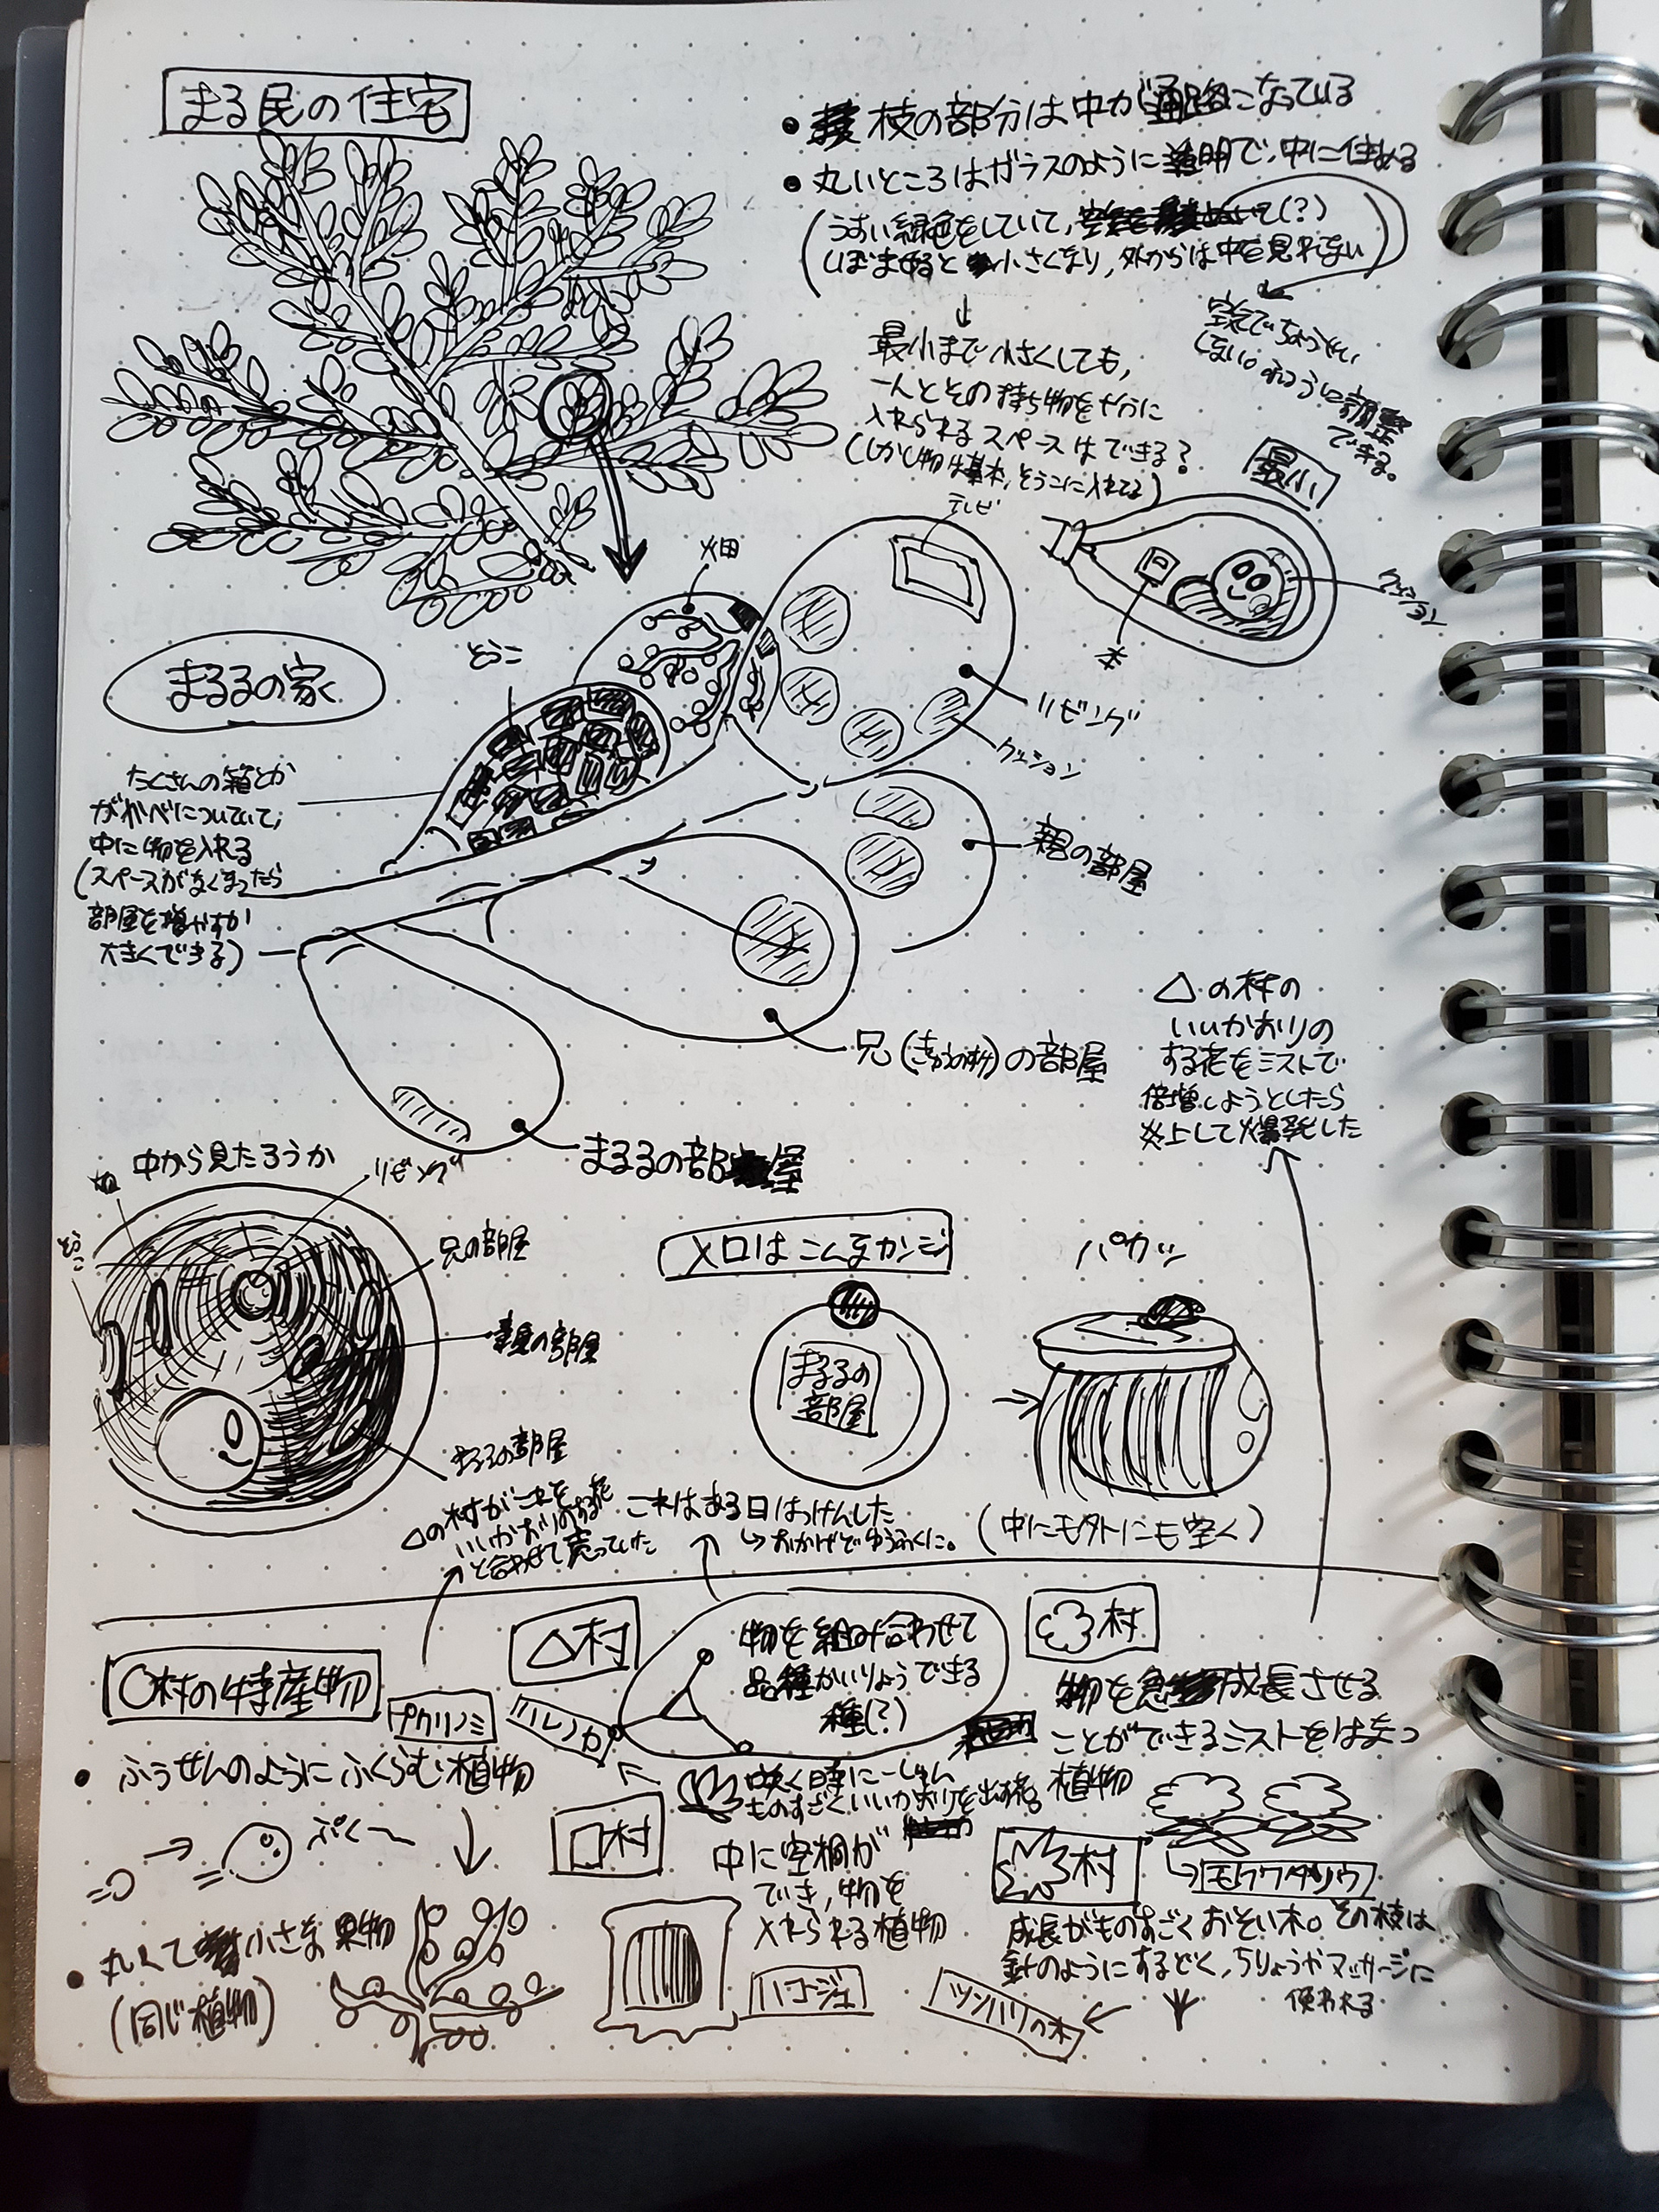 まる民の住宅
• 枝の部分は中が通路になっている
• 丸いところはガラスのように透明で、中に住める
(うすい緑色をしていて、
しぼませると小さくなり、外からは中を見れない)
↓
最小まで小さくしても、
一人とその持ち物を十分に
入れられるスペースはできる?
(しかし物は基本、そうこに入れてる)
調整
できる。
最小
クッション
本
テレビ
畑
そうこ
リビング
クッション
親の部屋
まるるの家
たくさんの箱とか
がかべについていて、
中に物を入れる
(スペースがなくなったら
部屋を増やすか
大きくできる)
兄の部屋
まるるの部屋
△の村の
いいかおりの
する花をミストで
倍増しようとしたら
炎上して爆発した
中から見たろうか
畑
リビング
そうこ
兄の部屋
親の部屋
まるるの部屋
入口はこんなカンジ
パカッ
まるるの
部屋
(中にも外にも空く)
△の村がこれを
いいかおりのする花
と合わせて売っていた
これはある日はっけんした
↳おかげでゆうふくに。
○村の特産物
プクリノミ
• ふうせんのようにふくらむ植物
ぷく〜
• 丸くて小さな果物
(同じ植物)
△村
物を組み合わせて
品種かいりょうできる
種(?)
咲く時に一しゅん
ものすごくいいかおりを出す花
□村
中に空洞が
でき、物を
入れられる植物
ハコージュ
村
物を急成長させる
ことができるミストをはなつ
植物
モクワタソウ
村
成長がものすごくおそい木。その枝は
針のようにするどく、ちりょうやマッサージに
使われる
ツンバリの木